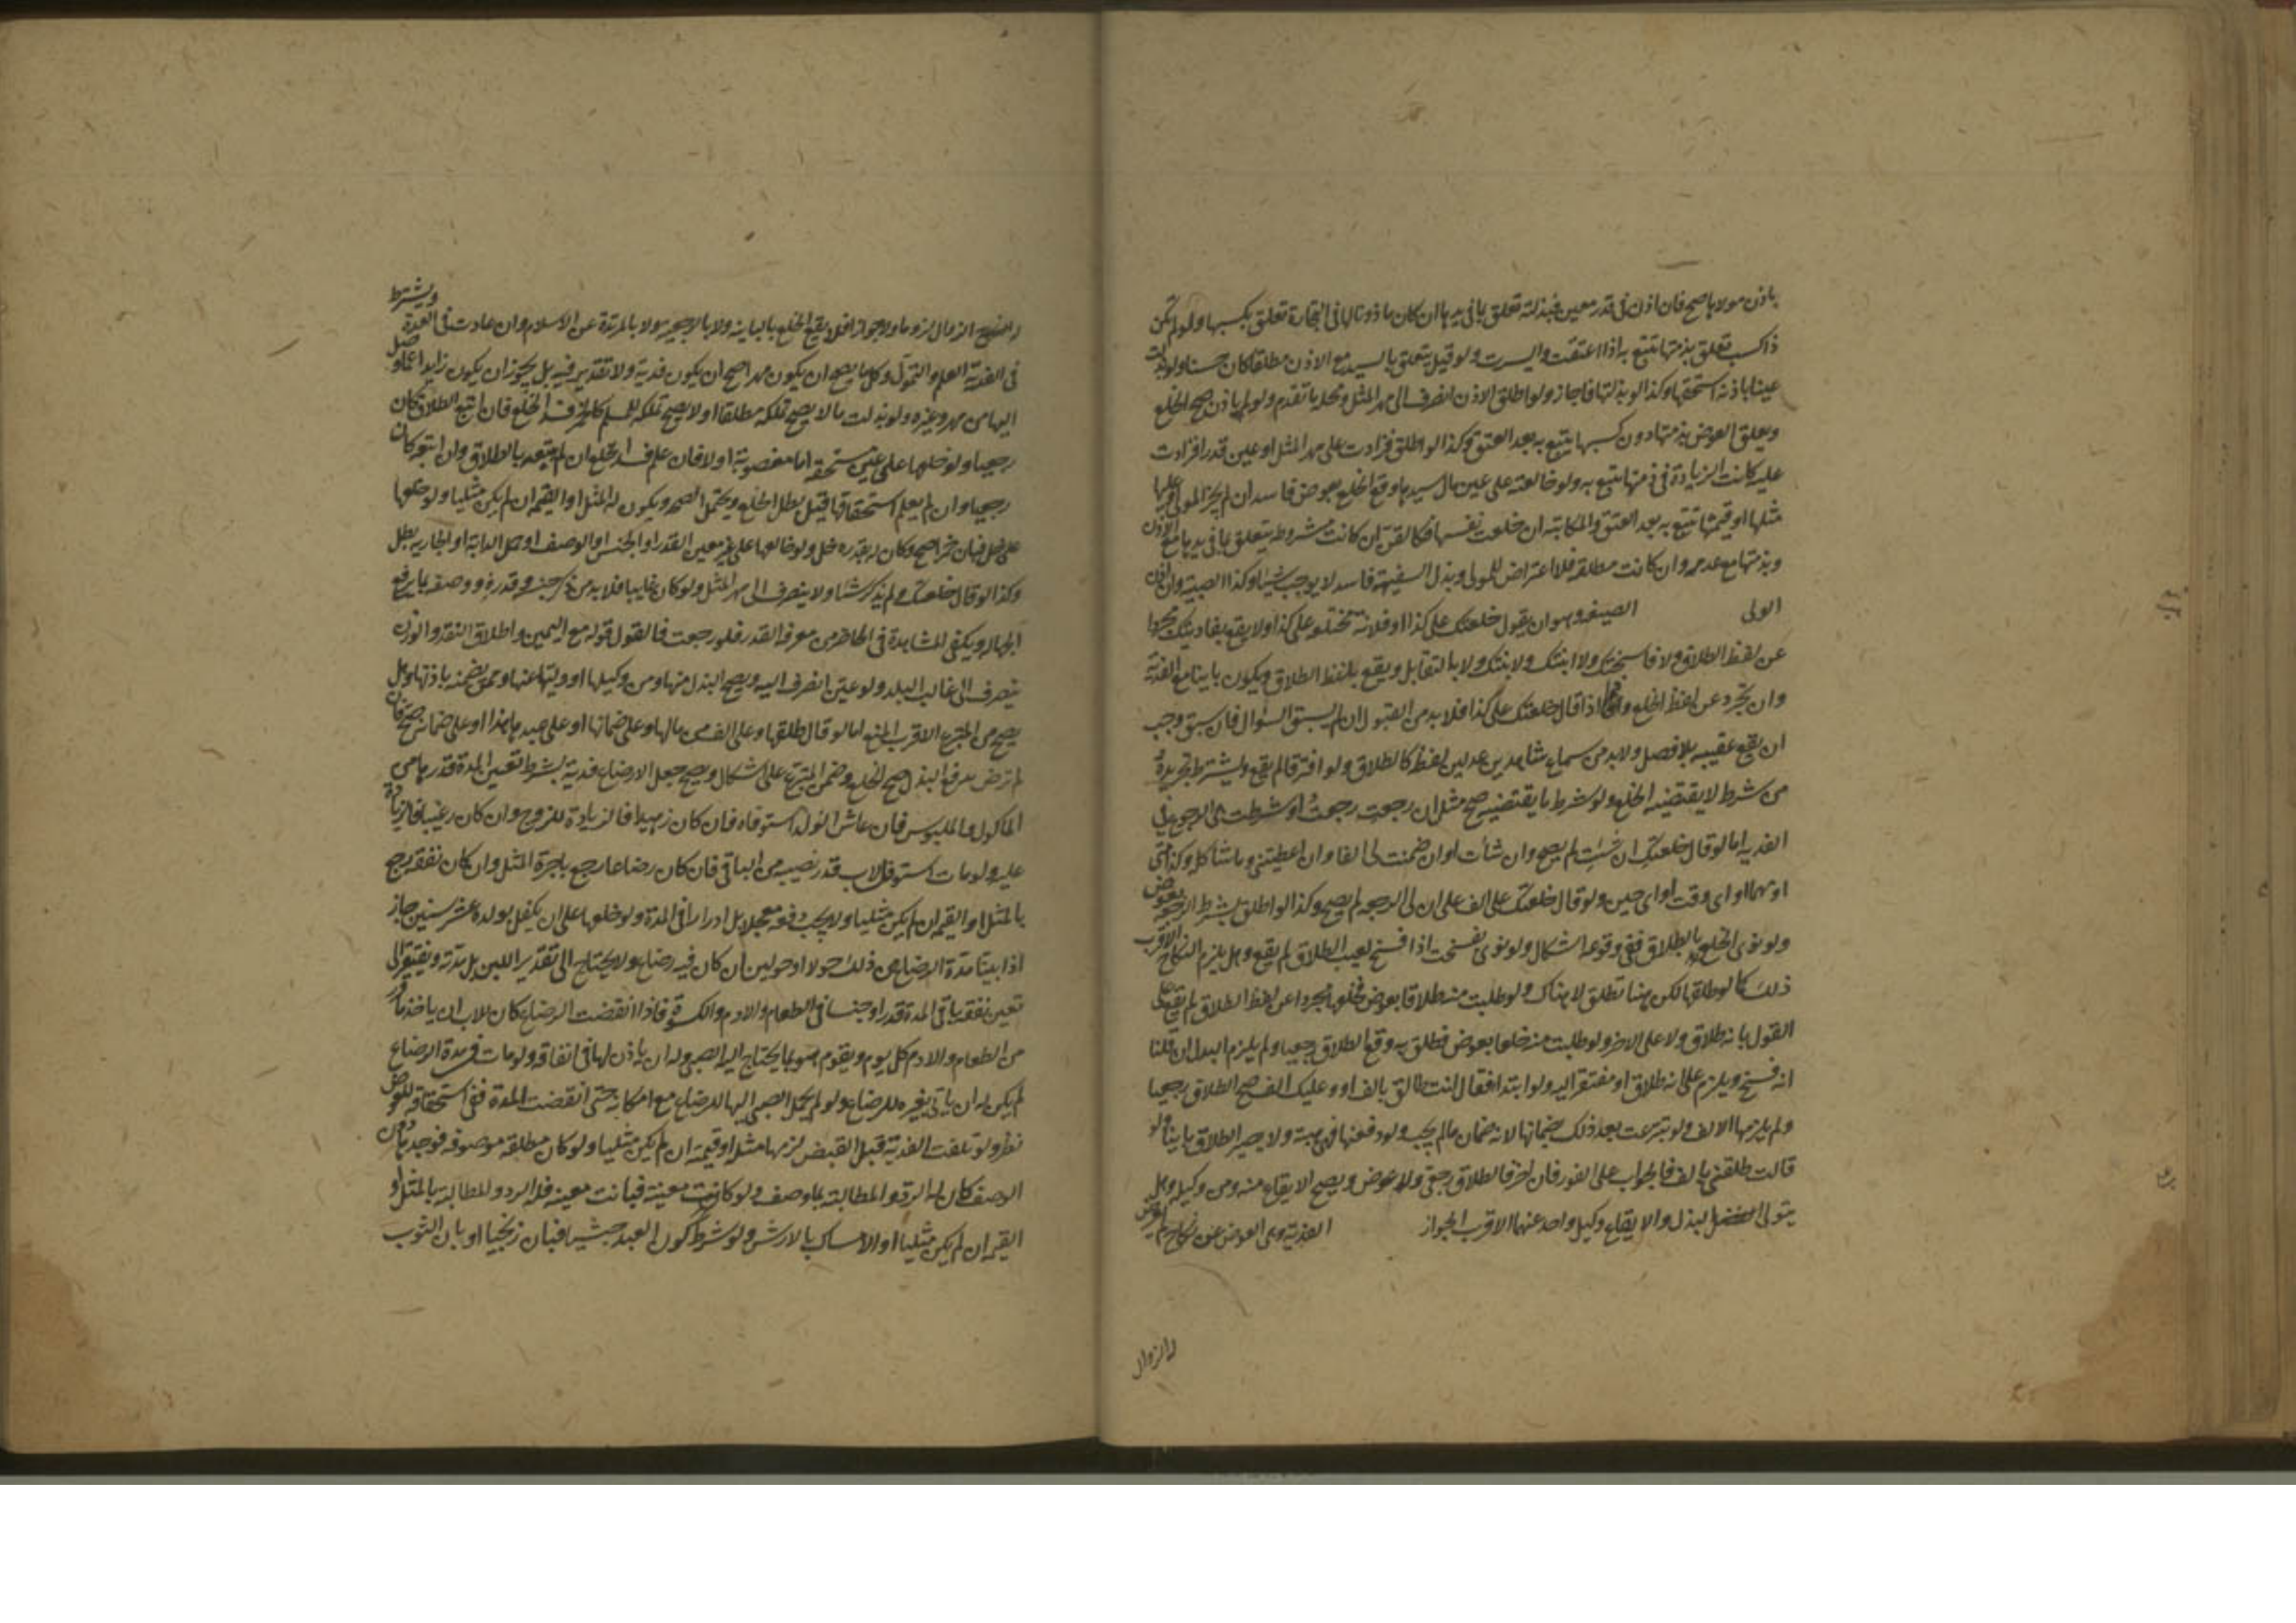 باذن مولاها صح فان اذن فى قدر معين فبذلته تعلق بما فى يدها ان كان ماذونا لها فى التجارة تعلق بكسبها ولو لم تكن
ذا كسب تعلق بذمتها تتبع به اذا اعتقت وايسرت ولو قيل يتعلق بالسيد مع الاذن مطلقا كان حسنا ولو بذلت
عينا باذنه استحقها وكذا لو بذلتها فاجاز ولو اطلق الاذن انصرف الى مهر المثل ولو لم ياذن صح الخلع
ويعلق العوض بذمتها دون كسبها يتبع به بعد العتق وكذا لو اطلق فزادت على مهر المثل او عين قدرا فزادت
عليه كانت الزيادة فى ذمتها تتبع به ولو خالعته على عين مال سيدها وقع الخلع بعوض فاسد ان لم يجز المولى وعليها
مثلها او قيمتها تتبع به بعد العتق والمكاتبة ان خلعت نفسها فكالقن ان كانت مشروطة يتعلق بما فى يدها مع الاذن
وبذمتها مع عدمه وان كانت مطلقة فلا اعتراض للمولى وبذل السفيهة فاسد لا يوجب شيئا وكذا الصبية وان اذن
الولى الصيغه وهو ان يقول خلعتك على كذا او فلانة مختلعة على كذا ولا يقع بفاديتك مجردا
عن لفظ الطلاق ولا فاسختك ولا ابنتك ولا بتتك ولا بالتقايل ويقع بلفظ الطلاق ويكون باينا مع الفدية
وان تجرد عن لفظ الخلع واذا قال خلعتك على كذا فلا بد من القبول ان لم يسبق السؤال فان سبق وجب
ان يقع عقيبه بلا فصل ولا بد من سماع شاهدين عدلين لفظه كالطلاق ولو افترقا لم يقع ويشترط تجريده
من شرط لا يقتضيه الخلع ولو شرط ما يقتضيه صح مثل ان رجعت رجعت او شرطت هى الرجوع فى
الفدية اما لو قال خلعتك ان شئت لم يصح وان شاءت او ان ضمنت لى الفا وان اعطيتنى وما شاكله وكذا متى
او مهما او اى وقت او اى حين ولو قال خلعتك على الف على ان لى الرجعه لم يصح وكذا لو اطلق بشرط الرجعة بعوض
ولو نوى بالخلع الطلاق ففى وقوعه اشكال ولو نوى بفسخت اذا فسخ لعيب الطلاق لم يقع وهل يلزم النكاح الاقرب
ذلك كما لو طلقها لكن هنا تطلق لا هناك ولو طلبت منه طلاقا بعوض فخلعها مجردا عن لفظ الطلاق لم يقع على
القول بانه طلاق ولا على الاخر ولو طلبت منه خلعا بعوض فطلق به وقع الطلاق رجعيا ولم يلزم البدل ان قلنا
انه فسخ ويلزم على انه طلاق او مفتقر اليه ولو ابتدا فقال انت طالق بالف او وعليك الف صح الطلاق رجعيا
ولم يلزمها الالف ولو تبرعت بعد ذلك بضمانها لانه ضمان ما لم يجب ولو دفعتها فهى هبة ولا يصير الطلاق باينا ولو
قالت طلقنى بالف فالجواب على الفور فان اخر فالطلاق رجعى ولا عوض ويصح الايقاع منه ومن وكيله وهل
يتولى البذل والايقاع وكيل واحد عنهما الاقرب الجواز الفدية وهى العوض عن نكاح لم يعرض
له الزوال
له الزوال لزوما ولا جوازا فلا يقع الخلع بالباينة ولا بالرجعيه ولا بالمرتدة عن الاسلام وان عادت فى العدة ويشترط
فى الفدية العلم والتمول وكل ما يصح ان يكون مهرا صح ان يكون فدية ولا تقدير فيه بل يجوز ان يكون زايدا عما وصل
اليها من مهر وغيره ولو بذلت ما لا يصح تملكه مطلقا او لا يصح تملكه للمسلم كالخمر فسد الخلع فان اتبع بالطلاق كان
رجعيا ولو خلعها على عين مستحقه اما مغصوبة اولا فان علم فسد الخلع ان لم يتبعه بالطلاق وان اتبع كان
رجعيا وان لم يعلم استحقاقها قيل يبطل الخلع ويحتمل الصحه ويكون له المثل او القيمه ان لم يكن مثليا ولو خلعها
على خل فبان خمرا صح وكان له بقدره خل ولو خالعها على غير معين القدر او الجنس او الوصف او حمل الدابة او الجارية بطل
وكذا لو قال خلعتك ولم يذكر شيئا ولا ينصرف الى مهر المثل ولو كان غايبا فلا بد من ذكر جنسه وقدره ووصفه بما يرفع
الجهاله ويكفى المشاهدة فى الحاضر من معرفة القدر فلو رجعت فالقول قوله مع اليمين واطلاق النقد والوزن
ينصرف الى غالب البلد ولو عين انصرف اليه ويصح البذل منها ومن وكيلها او وليها عنها وممن يضمنه باذنها وهل
يصح من المتبرع الاقرب المنع اما لو قال طلقها وعلى الف من مالها وعلى ضمانها او على عبدها هذا او على ضمانه صح فان
لم ترض بدفع البذل صح الخلع وضمن المتبرع على اشكال ويصح جعل الارضاع فدية بشرط تعيين المدة وقدرها من
الماكول والملبوس فان عاش الولد استوفاه فان كان زهيدا فالزيادة للزوج وان كان رغيبا فالزيادة
عليه ولو مات استوفى الاب قدر نصيبه من الباقى فان كان رضاعا رجع باجرة المثل وان كان نفقه رجع
بالمثل او القيمه ان لم يكن مثليا ولا يجب دفعه معجلا بل ادرارا فى المدة ولو خلعها على ان يكفل بولده عشر سنين جاز
اذا بينا مدة الرضاع من ذلك حولا او حولين ان كان فيه رضاع ولا يحتاج الى تقدير اللبن بل مدته ويفتقر الى
تعيين نفقة باقى المدة قدرا وجنسا فى الطعام والادم والكسوة فاذا انقضت الرضاع كان للاب ان ياخذ ما قدر
من الطعام والادم كل يوم ويقوم هو بما يحتاج اليه الصبى وله ان ياذن لها فى انفاقه ولو مات فى مدة الرضاع
لم يكن له ان ياتى بغيره للرضاع ولو لم يحمل الصبى اليها للرضاع مع امكانه حتى انقضت المدة ففى استحقاقه للعوض
نظر ولو تلفت الفدية قبل القبض لزمها مثله او قيمته ان لم يكن مثليا ولو كان مطلقة موصوفه فوجد ما دون
الوصف كان له الرد والمطالبة بما وصف ولو كانت معينة فبانت معيبة فله الرد والمطالبة بالمثل او
القيمه ان لم يكن مثليا او الامساك بالارش ولو شرط كون العبد حبشيا فبان زنجيا او بان الثوب